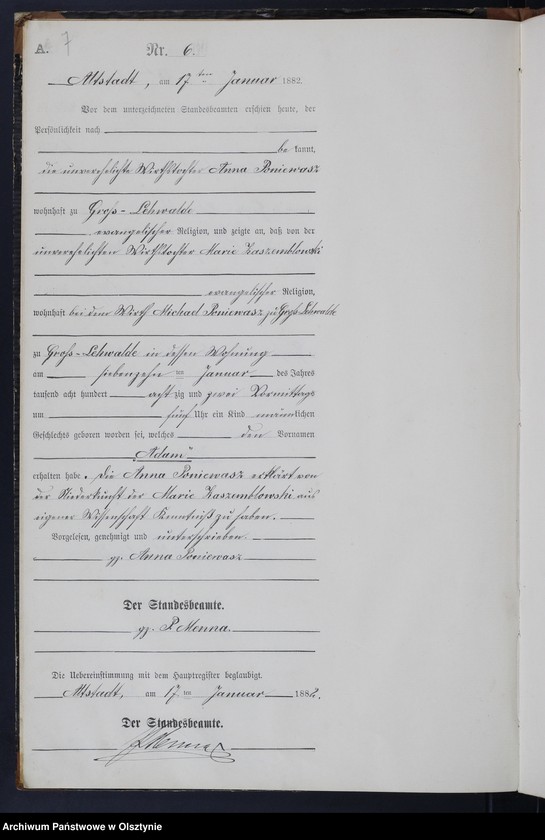 A. 7
Nr. 6.
Altstadt, am 17ten Januar 1882.
Vor dem unterzeichneten Standesbeamten erschien heute, der
Persönlichkeit nach
be kannt,
die unverehelichte Wirthstochter Anna Poniewasz
wohnhaft zu Groß-Lehwalde
evangelischer Religion, und zeigte an, daß von der
unverehelichten Wirthstochter Marie Kaszemblowski
evangelischer Religion,
wohnhaft bei dem Wirth Michael Poniewasz zu Groß-Lehwalde
zu Groß-Lehwalde in dessen Wohnung
am siebenzehn ten Januar des Jahres
tausend acht hundert acht zig und zwei Vormittags
um fünf Uhr ein Kind männlichen
Geschlechts geboren worden sei, welches den Vornamen
"Adam"
erhalten habe. Die Anna Poniewasz erklärt von
der Niederkunft der Marie Kaszemblowski aus
eigener Wissenschaft Kenntniß zu haben.
Vorgelesen, genehmigt und unterschrieben.
gz. Anna Poniewasz
Der Standesbeamte.
gz. P. Menna.
Die Uebereinstimmung mit dem Hauptregister beglaubigt.
Altstadt, am 17. ten Januar 1882.
Der Standesbeamte.
P. Menna
Archiwum Państwowe w Olsztynie